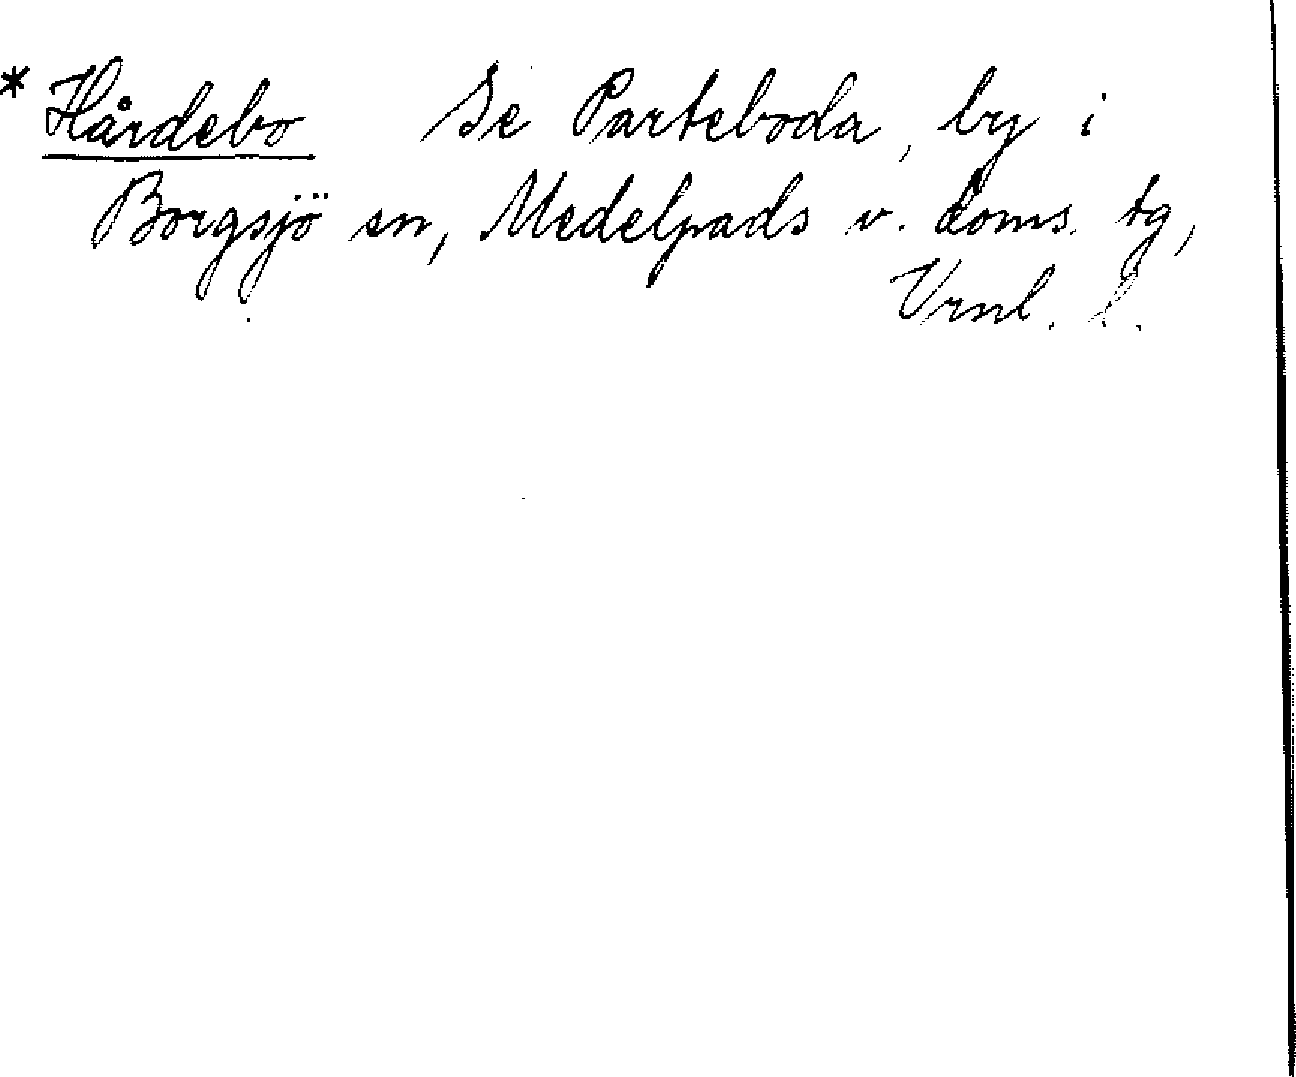 * Hårdebo Se Parteboda, by i
Borgsjö sn, Medelpads v. doms. tg,
Vrnl. l.